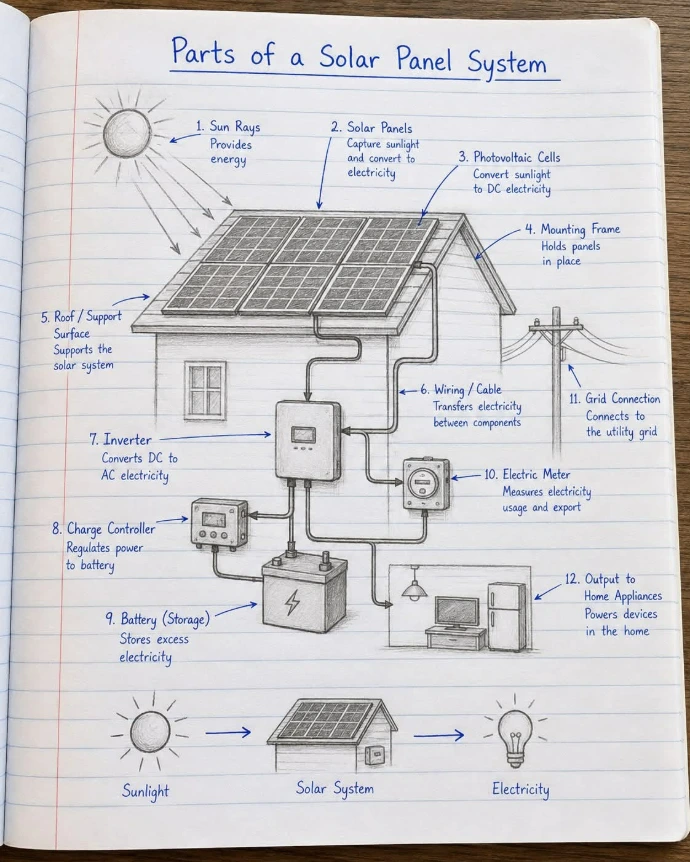 Parts of a Solar Panel System
1. Sun Rays
Provides
energy
2. Solar Panels
Capture sunlight
and convert to
electricity
3. Photovoltaic Cells
Convert sunlight
to DC electricity
4. Mounting Frame
Holds panels
in place
5. Roof / Support
Surface
Supports the
solar system
6. Wiring / Cable
Transfers electricity
between components
7. Inverter
Converts DC to
AC electricity
8. Charge Controller
Regulates power
to battery
9. Battery (Storage)
Stores excess
electricity
10. Electric Meter
Measures electricity
usage and export
11. Grid Connection
Connects to
the utility grid
12. Output to
Home Appliances
Powers devices
in the home
Sunlight
Solar System
Electricity